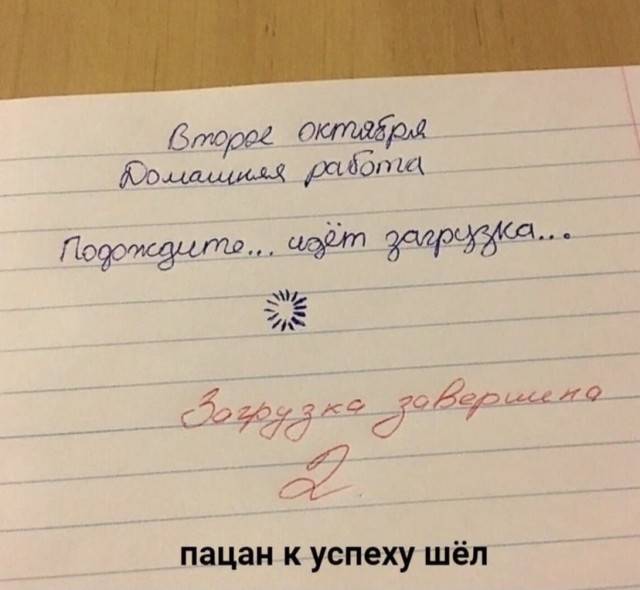 Второе октября
Домашняя работа
Подождите... идёт загрузка...
Загрузка завершена
2.
пацан к успеху шёл